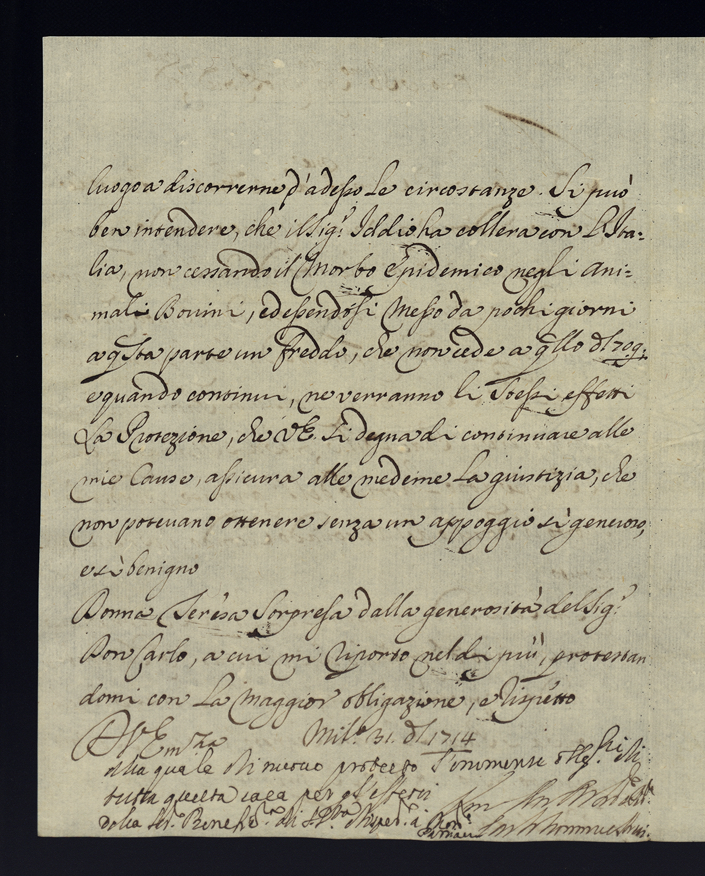 luogo a discorrerne d'adesso le circostanze. Si può
ben intendere, che il Sig.r Iddio ha collera con l'Ita=
lia, non cessando il Morbo Epidemico negli Ani=
mali Bovini, ed essendosi messo da pochi giorni
a q'sta parte un freddo, che non cede a q'llo d'l 709.
e quando continui, ne verranno li stessi effetti
La Protezione, che V.E. si degna di continuare alle
mie Cause, assicura alle medeme la giustizia, che
non potevano ottenere senza un appoggio sì generoso,
e sì benigno
Donna Teresa sorpresa dalla generosità del Sig.r
Don Carlo, a cui mi riporto nel di più, protestan
domi con la maggior obligazione, e rispetto
D V Em.za Mil.o 31. 1714
alla quale di nuovo protesto
tutta questa casa per gl'effetti
della